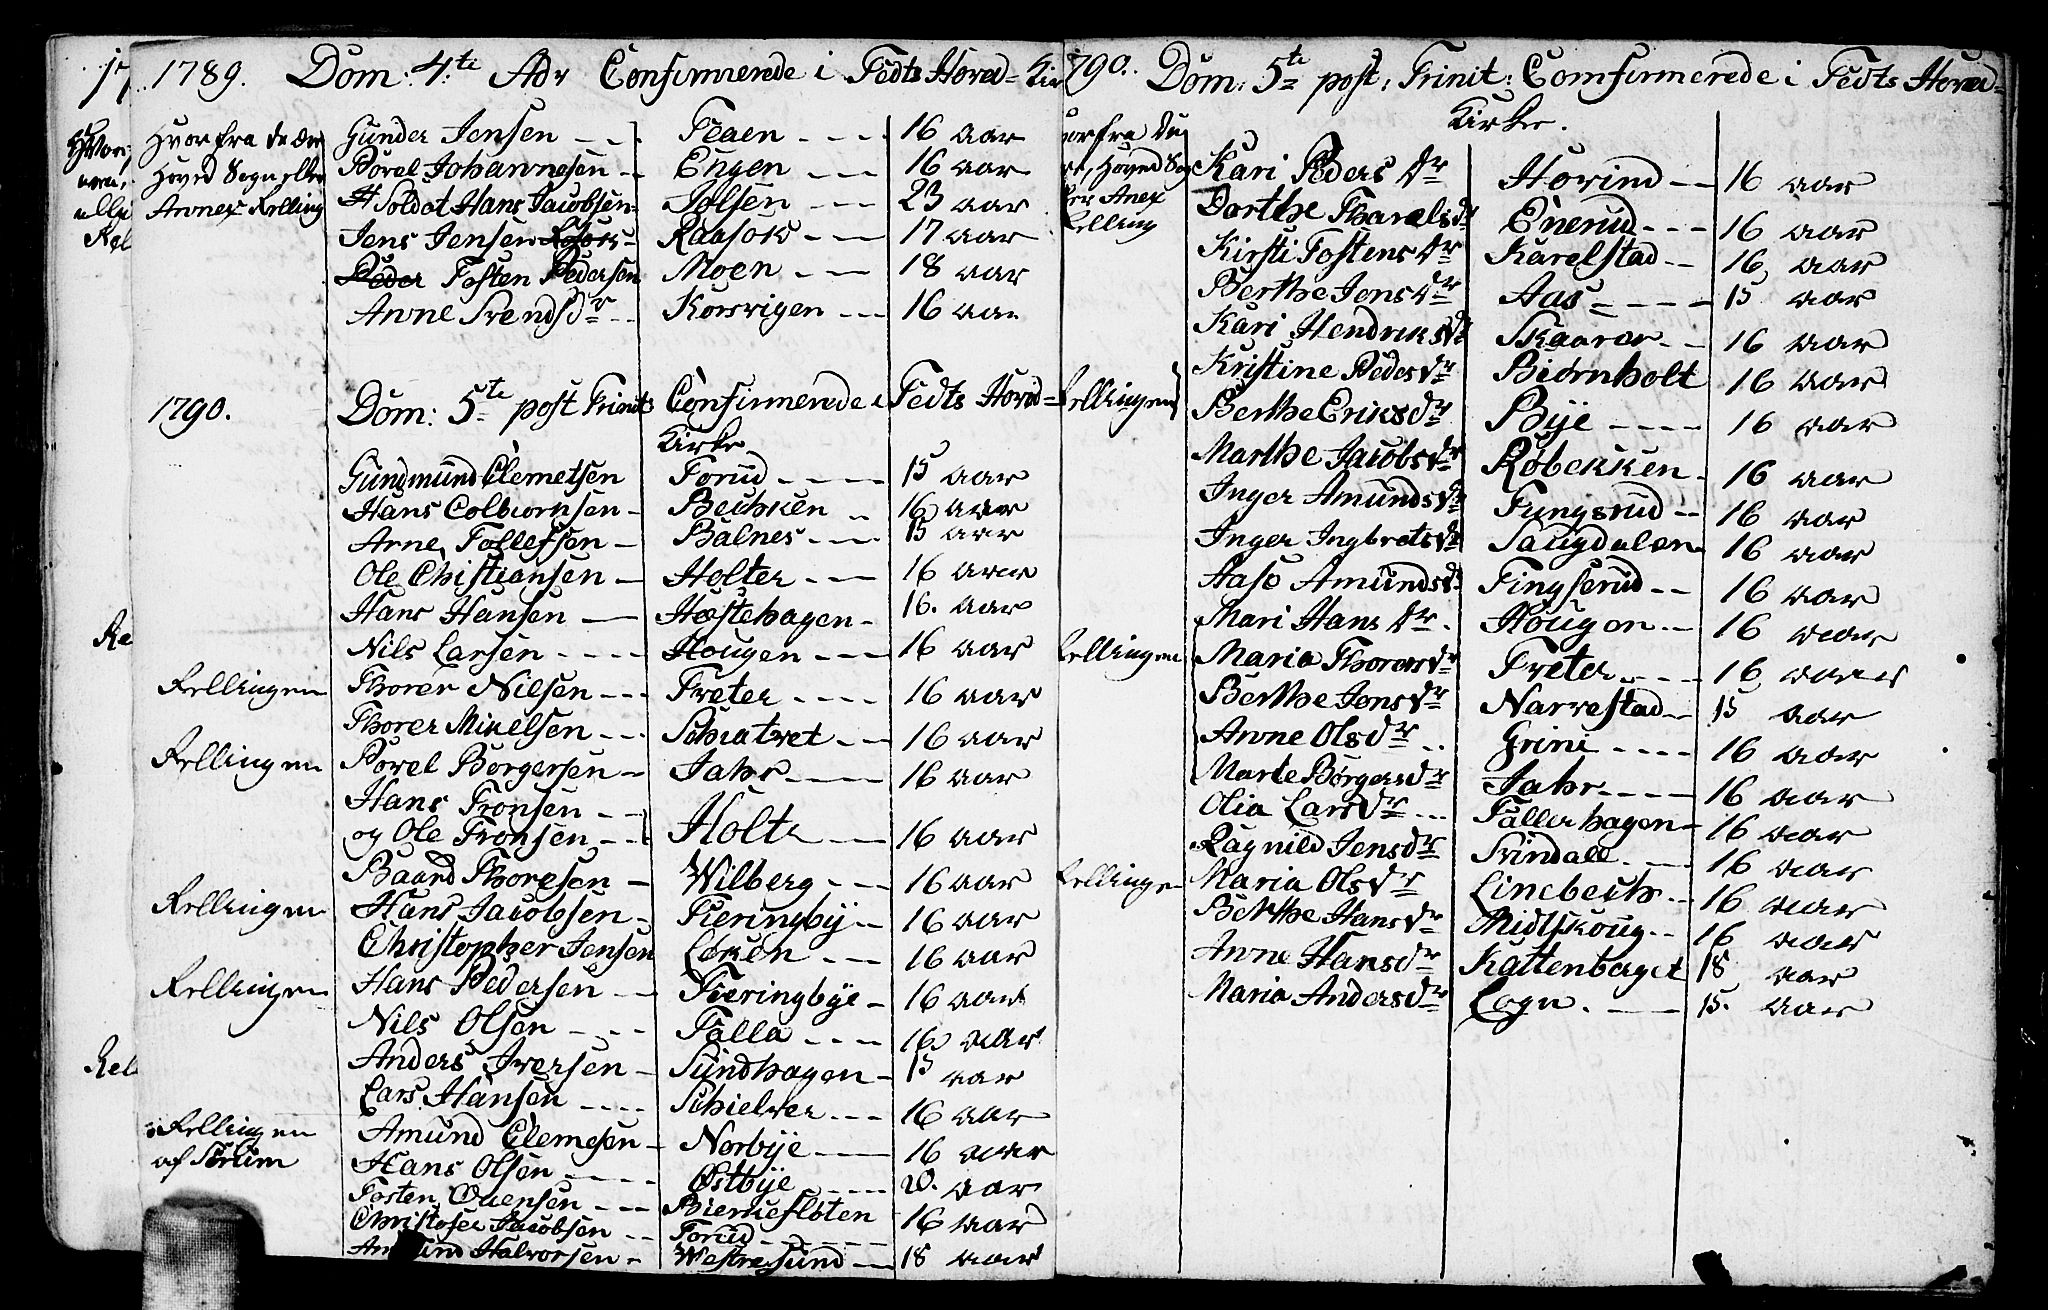 1789. Dom: 4te Adv Confirmerede i Fedts Hoved=Kir
Hvorfra de ære
Hoved Sogn eller
Annex Relling
Gunder Jensen --- Teaen ---- 16 aar
Povel Johannesen -- Engen --- 16 aar
Soldat Hans Jacobsen Jølsen --- 23 aar
Jens Jensen Raasok --- 17 aar
Peder Tosten Pedersen Moen --- 18 aar
Anne Svends dr -- Korsvigen --- 16 aar
1790. Dom: 5te post Trinit: Confirmerede i Fedts Hoved=
Kirke
Gundmund Clemetsen Forud ---- 15 aar
Hans Colbiornsen - Bechken -- 16 aar
Arne Tollefsen - Balnes --- 15 aar
Ole Christiansen - Holter --- 16 aar
Hans Hansen -- Hæstehagen - 16. aar
Nils Larsen ---- Hougen --- 16 aar
Rellingen Thorer Nilsen --- Freter ---- 16 aar
Thorer Mikelsen --- Schiatvet --- 16 aar
Rellingen Povel Børgersen - Jahr ---- 16 aar
Hans Tronsen ---
og Ole Tronsen --- Holte --- 16 aar
Baard Thoresen - Wilberg --- 16 aar
Rellingen Hans Jacobsen - Fieringbÿ -- 16 aar
Christopher Jensen Løken --- 16 aar
Rellingen Hans Pedersen -- Fieringbÿe - 16 aar
Nils Olsen --- Falla ---- 16. aar
Anders Iversen - Sundhagen - 15 aar
Lars Hansen ---- Schielver --- 16 aar
Rellingen Amund Clemesen - Norbÿe ---- 16 aar
af Sørum Hans Olsen ----- Østbÿe ---- 20. aar
Tosten Ouensen --- Biernefloten 16 aar
Christofer Jacobsen -- Forud ------
Halvorsen - Westresund -- 18 aar
790. Dom: 5te post: Trinit: Comfirmerede i Fedts Hoved=
Kirke.
orfra du
Hoved So
Anex
elling
Kari Peders dr Hovind -- 16 aar
Dorthe Tharals dr Enerud --- 16 aar
Kirsti Tostens dr Karelstad -- 16 aar
Berthe Jens dr Aas ---- 15 aar
Kari Hendriks dr Skaarer -- 16 aar
Kristine Peders dr Biørnholt 16 aar
ellingen Berthe Eriks dr Bÿe ---- 16 aar
Marthe Jacobs dr Robekken - 16 aar
Inger Amunds dr Fungsrud -- 16 aar
Inger Ingbrets dr Saugdalen 16 aar
Aase Amunds dr Tingserud -- 16 aar
Mari Hans dr. Hougen -- 16 aar
ellingen Maria Thorers dr Freter ---- 16 aar
Berthe Jens dr Narvestad -- 15 aar
Anne Ols dr -- Grini ---- 16 aar
Marte Børgers dr Jahr ---- 16 aar
Olia Lars dr --- Fallerhagen - 16 aar
Ragnild Jens dr Svindall --- 16 aar
ellingen Maria Ols dr Linebech -- 16 aar
Berthe Hans dr Midtskoug -- 16 aar
Anne Hans dr Kattenberget 18 aar
Maria Anders dr Løgn. --- 15. aar